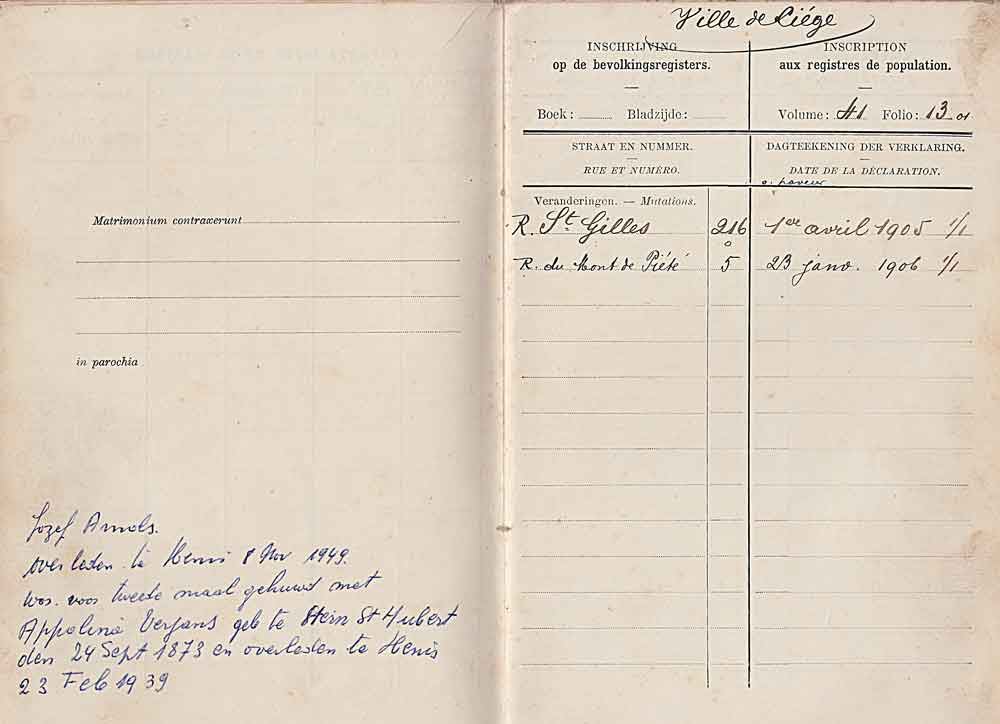 Matrimonium contraxerunt
in parochia
Jozef Arnols.
overleden te Henis 8 Nov 1949.
was voor tweede maal gehuwd met
Appolina Verjans geb te Stern St Hubert
den 24 Sept 1873 en overleden te Henis
23 Feb 1939
Ville de Liége
INSCHRIJVING
op de bevolkingsregisters.
INSCRIPTION
aux registres de population.
Boek: Bladzijde:
Volume: 41 Folio: 13
STRAAT EN NUMMER.
RUE ET NUMÉRO.
DAGTEEKENING DER VERKLARING.
DATE DE LA DÉCLARATION.
Veranderingen. — Mutations.
R. St Gilles 216 1er avril 1905 1/1
R. du Mont de Piété 5 23 janv. 1906 1/1